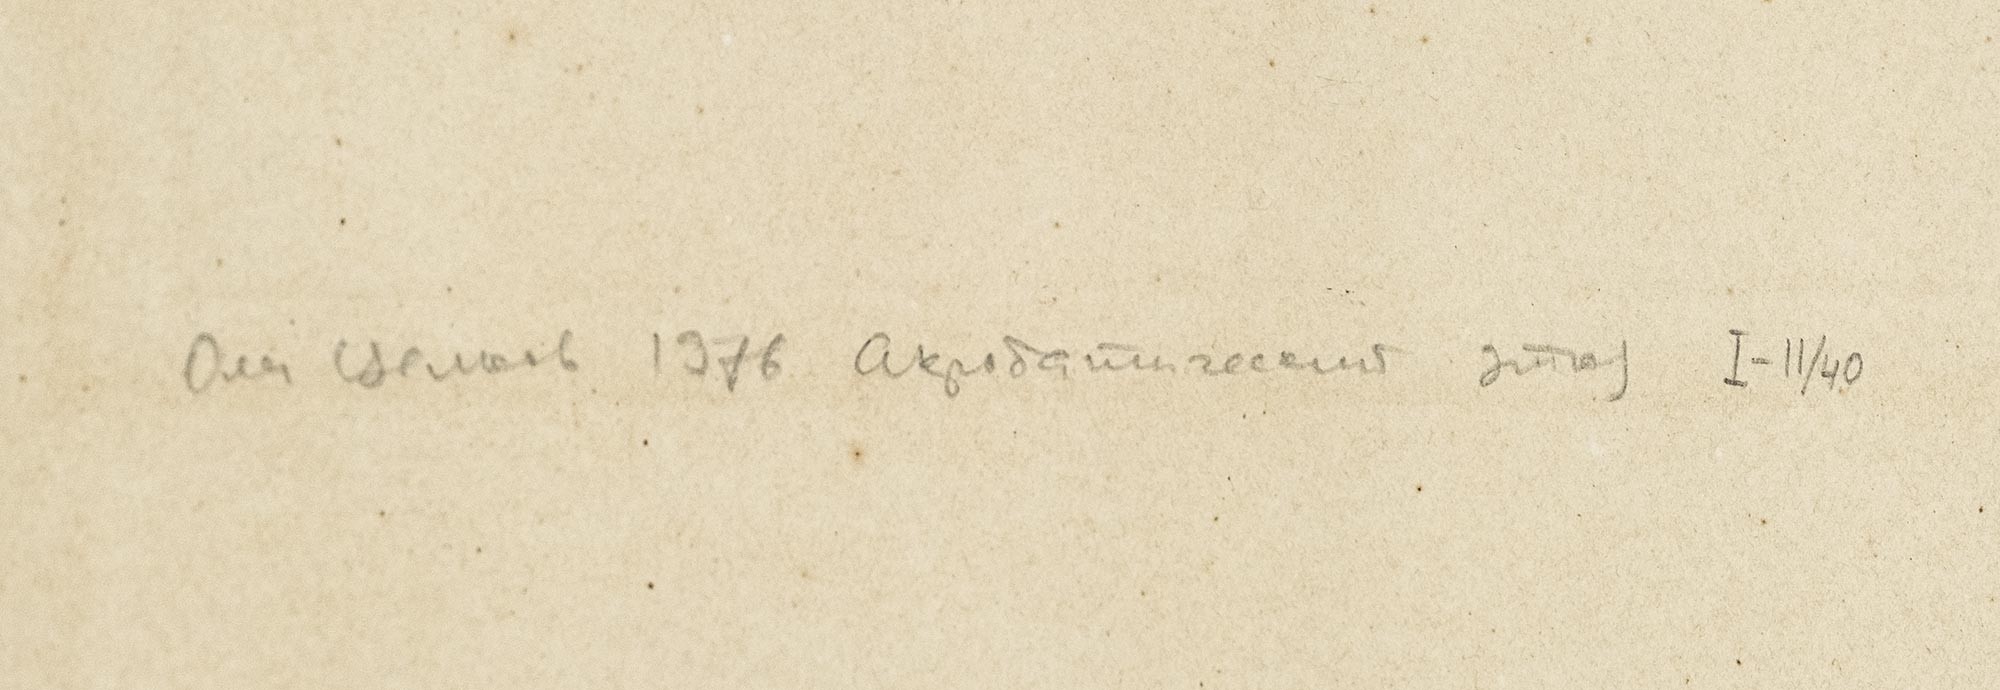 Олег Целков 1976 Акробатический этюд I-11/40